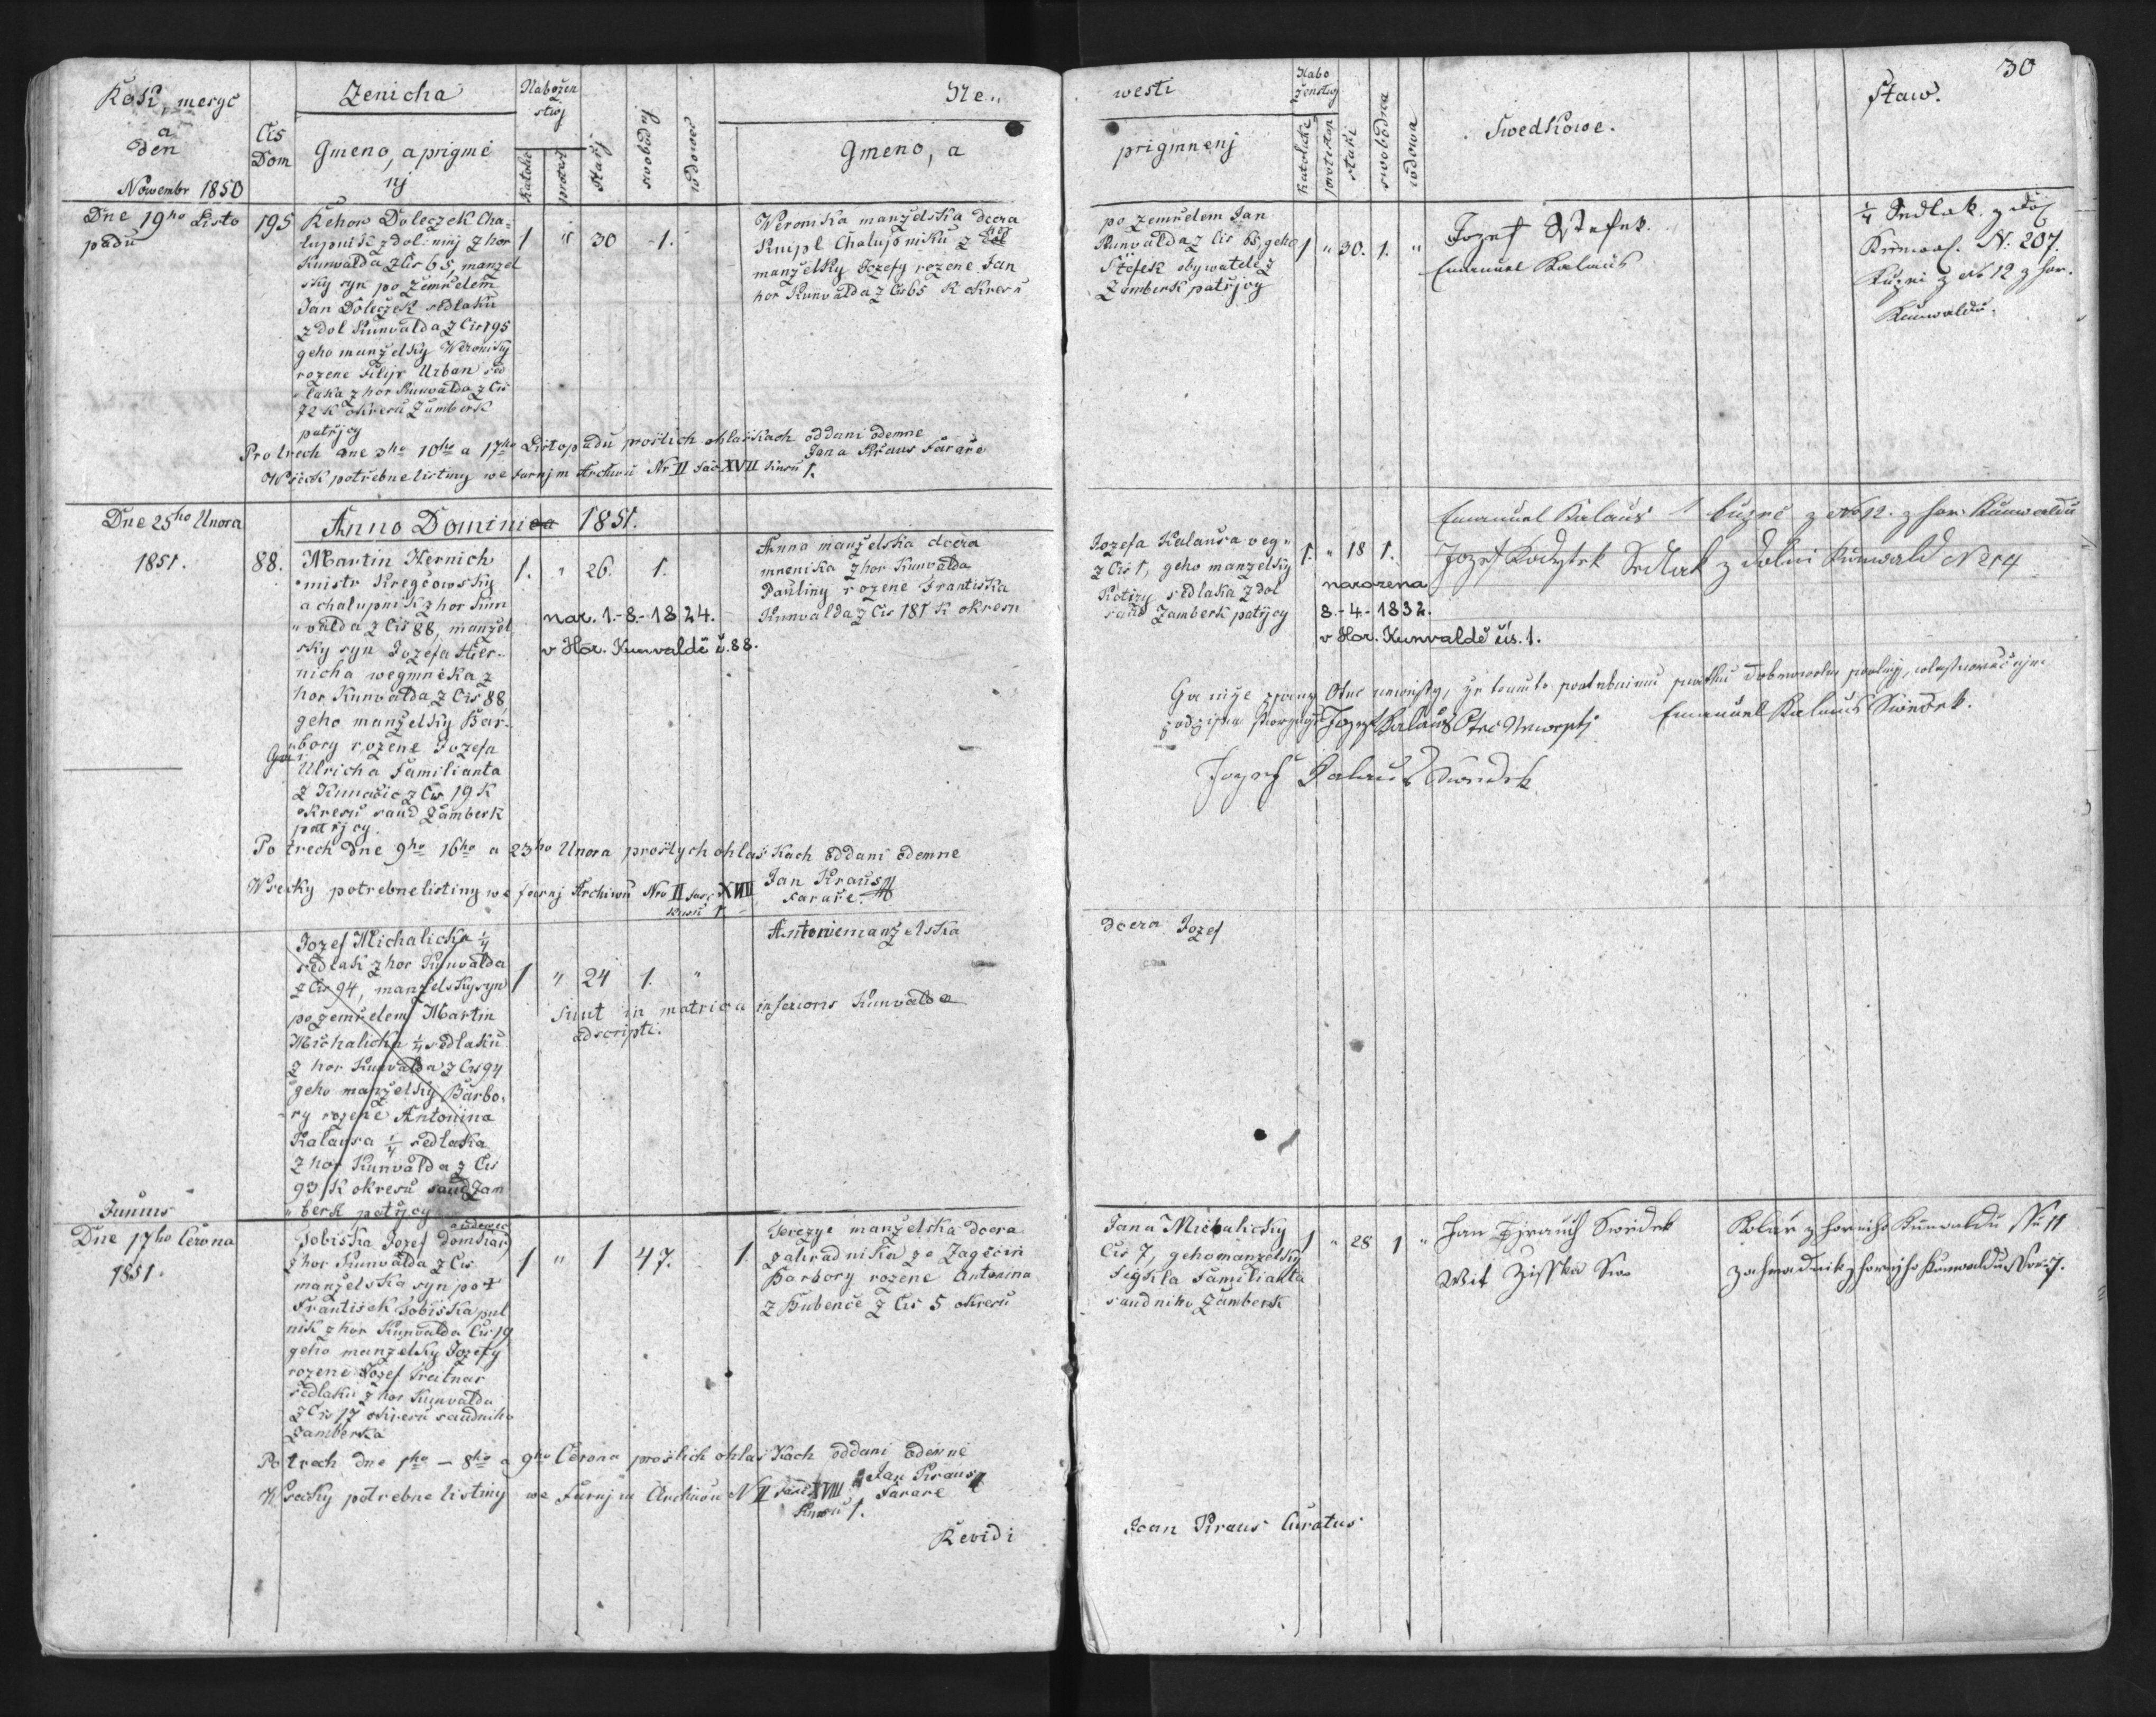 30
Rok, mesyc
a
den
Nowembr 1850
Cis
Dom
Zenicha
Gmeno, a prigmé
nj
Nábožen
stwj
Katolic
protest
Stařj
swobodnj
wdowec
Ne„
Gmeno, a
westi
prigmnenj
Nabo
ženstwj
Katolické
protestan
stáří
swobodna
wdowa
Swedkowe.
Staw.
Dne 19ho Listo
padu
195
Řehoř Doleczek Cha„
lupnik z dolinnj z hor
Kunwalda z Cis 65, manzel
sky syn po zemřelem
Jan Doleczek sedlaku
z dol Kunwalda z Cis 195
geho manželky Weroniky
rozene Filip Urban sed
laka z hor Kunwalda z Cis
72 k okresu Žamberk
patřjcy
1 " 30 1.
Weronika manželska dcera
Knipl Chalupniku z
manželky Jozefy rozene Jan
hor Kunvalda z Cis 65 k okresu
po zemřelem Jan
Kunvalda z Cis 65, geho
Štefek obywatele z
Žamberk patřjcy
1 " 30. 1. "
Jozef Stefek
Emanuel Kalaus
1/4 Sedlak z dol
Kunwal. N. 207.
Kupci z No 12 z hor.
Kunwaldu.
Po trech dne 3ho 10ho a 17ho Listopadu prošlich ohlaškach oddani odemne
Jana Kraus Faraře
Wšecky potřebne listiny we farnjm Archivu Nr II Fas XVII kusu 1.
Dne 25ho Unora
1851.
Anno Domini 1851.
88.
Martin Hernich
mistr Kregčowsky
a chalupnik z hor Kun
„valda z Cis 88, manžel
sky syn Jozefa Her„
nicha wegmnéka z
hor Kunvalda z Cis 88,
geho manželky Bar„
bory rozene Jozefa
Ulricha Familianta
z Kunačic z Cis 19 k
okresu saud Žamberk
patřjcy.
1. " 26. 1.
nar. 1.-8.-1824.
v Hor. Kunvaldě č. 88.
Anna manželska dcera
mneníka z hor Kunvalda
Pauliny rozene Frantiska
Kunvalda z Cis 181 k okresu
Jozefa Kalausa weg„
z Cis 1, geho manželky
Kotizy sedlaka z dol
saud Žamberk patřjcy
1. " 18 1.
narozena
8.-4.-1832.
v Hor. Kunvaldě čís. 1.
Emanuel Kalaus 1 kupec z No 12. z hor. Kunwaldu
Jozef Sedlak z dolni Kunwald N 214
Jozef Kalaus Otec Newesty
Emanuel Kalaus Swědek.
Jozef Kalaus Swědek
Po trech dne 9ho 16ho a 23ho Unora prošlych ohlaškach oddani odemne
Jan Kraus
Faraře.
Wsecky potrebne listiny we farnj Archivu Nro II Fasc XVIII
kusu 1
Jozef Michalicka 1/4
sedlak z hor Kunvalda
z Cis 94, manželsky syn
po zemřelem Martin
Michalicka 1/4 sedlaku
z hor Kunvalda z Cis 94
geho manželky Barbo„
ry rozene Antonina
Kalausa 1/4 sedlaka
z hor Kunvalda z Cis
93 k okresu saud Žam
„berk patřjcy
1 " 24 1. "
Antonie manželska
dcera Jozef
sunt in matrica inferioris Kunvalda
adscripti.
Junius
Dne 17ho Cerona
1851.
wdowec
Sobiska Jozef domkař
z hor Kunvalda z Cis
manželska syn po †
František Sobiska pul
nik z hor Kunvalda Cis 19
geho manželky Jozefy
rozene Jozef Preitnar
sedlaku z hor Kunvalda
z Cis 17 okresu saudniho
Žamberka
1 " 1 47. 1
Terezye manželska dcera
zahradnika ze Zagečin
Barbory rozene Antonina
z Bubenče z Cis 5 okresu
Jana Michalicky
Cis 7, geho manželky
Fegkla Familianta
saudniho Žamberk
1 " 28 1 "
Jan Swědek
Wit Zisska Sw
Kolář z horniho Kunwaldu Nu 11
zahradnik z hornjho Kunwaldu Nro 7.
Po trech dne 1ho – 8ho a 9ho Cerona prošlich ohlaškach oddani odemně
Jan Kraus
Farare
Wsecky potrebne listiny we Farnjm Archivu N II Fasc XVIII
kusu 1.
Revidi
Joan Kraus Curatus